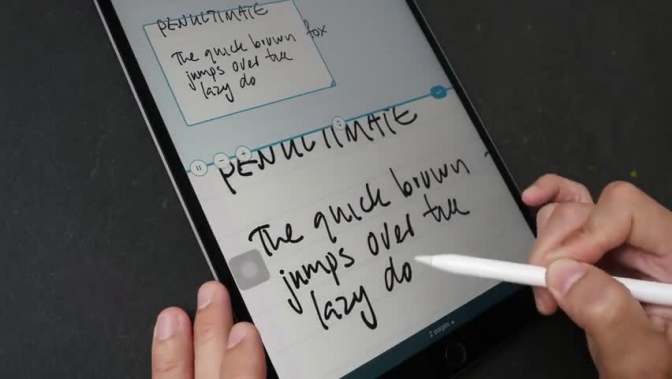 PENULTIMATE
The quick brown fox
jumps over the
lazy do
PENULTIMATE
The quick brown
jumps over the
lazy do
2 pages